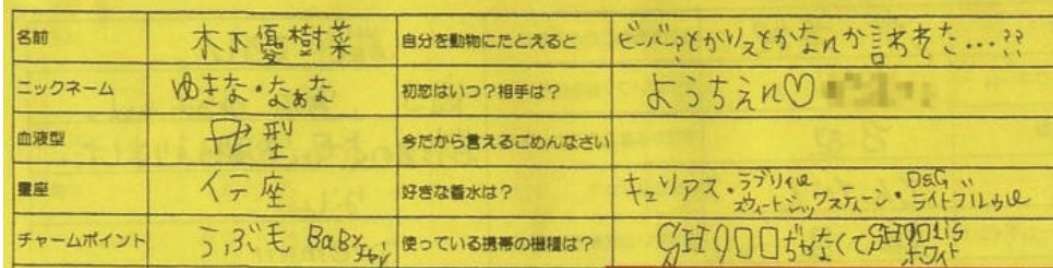 名前 木下優樹菜 自分を動物にたとえると ビーバー?とかリスとかなんか言われた…??
ニックネーム ゆきな・なぁな 初恋はいつ?相手は? ようちえん♡
血液型 型 今だから言えるごめんなさい
星座 イテ座 好きな香水は? キュリアス・ラブリィ
スウィートシックスティーン・D&G ライトブルゥ
チャームポイント うぶ毛 BaBy 使っている携帯の機種は? SH900ぢゃなくてSH901is
ホワイト